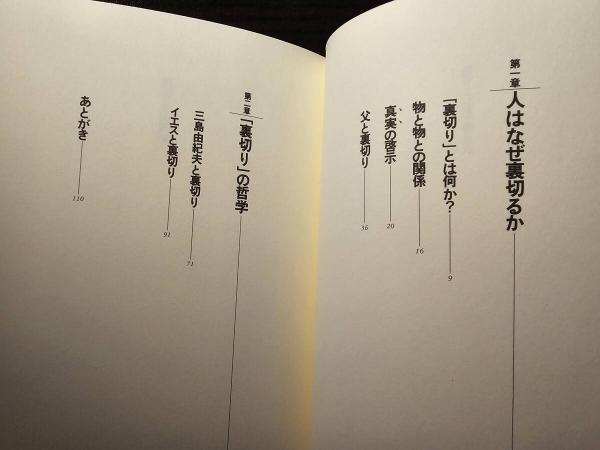 第一章
人はなぜ裏切るか
「裏切り」とは何か?
9
物と物との関係
16
真実の啓示
20
父と裏切り
36
第二章
「裏切り」の哲学
三島由紀夫と裏切り
71
イエスと裏切り
91
あとがき
110